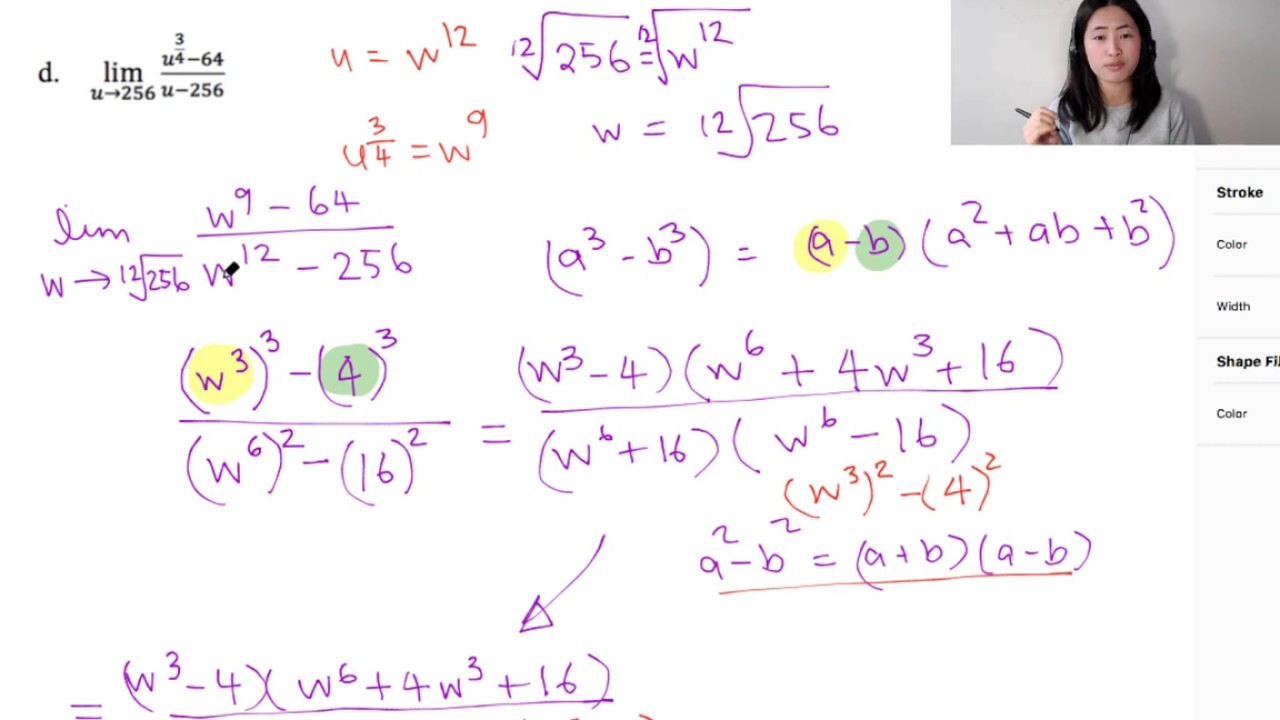 d. lim u→256 (u^(3/4)−64)/(u−256)
u = w^12
¹²√256 = ¹²√w^12
u^(3/4) = w^9
w = ¹²√256
lim w→¹²√256 (w^9 − 64)/(w^12 − 256)
(a^3 − b^3) = (a − b)(a^2 + ab + b^2)
((w^3)^3 − (4)^3)/((w^6)^2 − (16)^2) = ((w^3 − 4)(w^6 + 4w^3 + 16))/((w^6 + 16)(w^6 − 16))
(w^3)^2 − (4)^2
a^2 − b^2 = (a + b)(a − b)
= (w^3 − 4)(w^6 + 4w^3 + 16)
Stroke
Color
Width
Shape Fil
Color